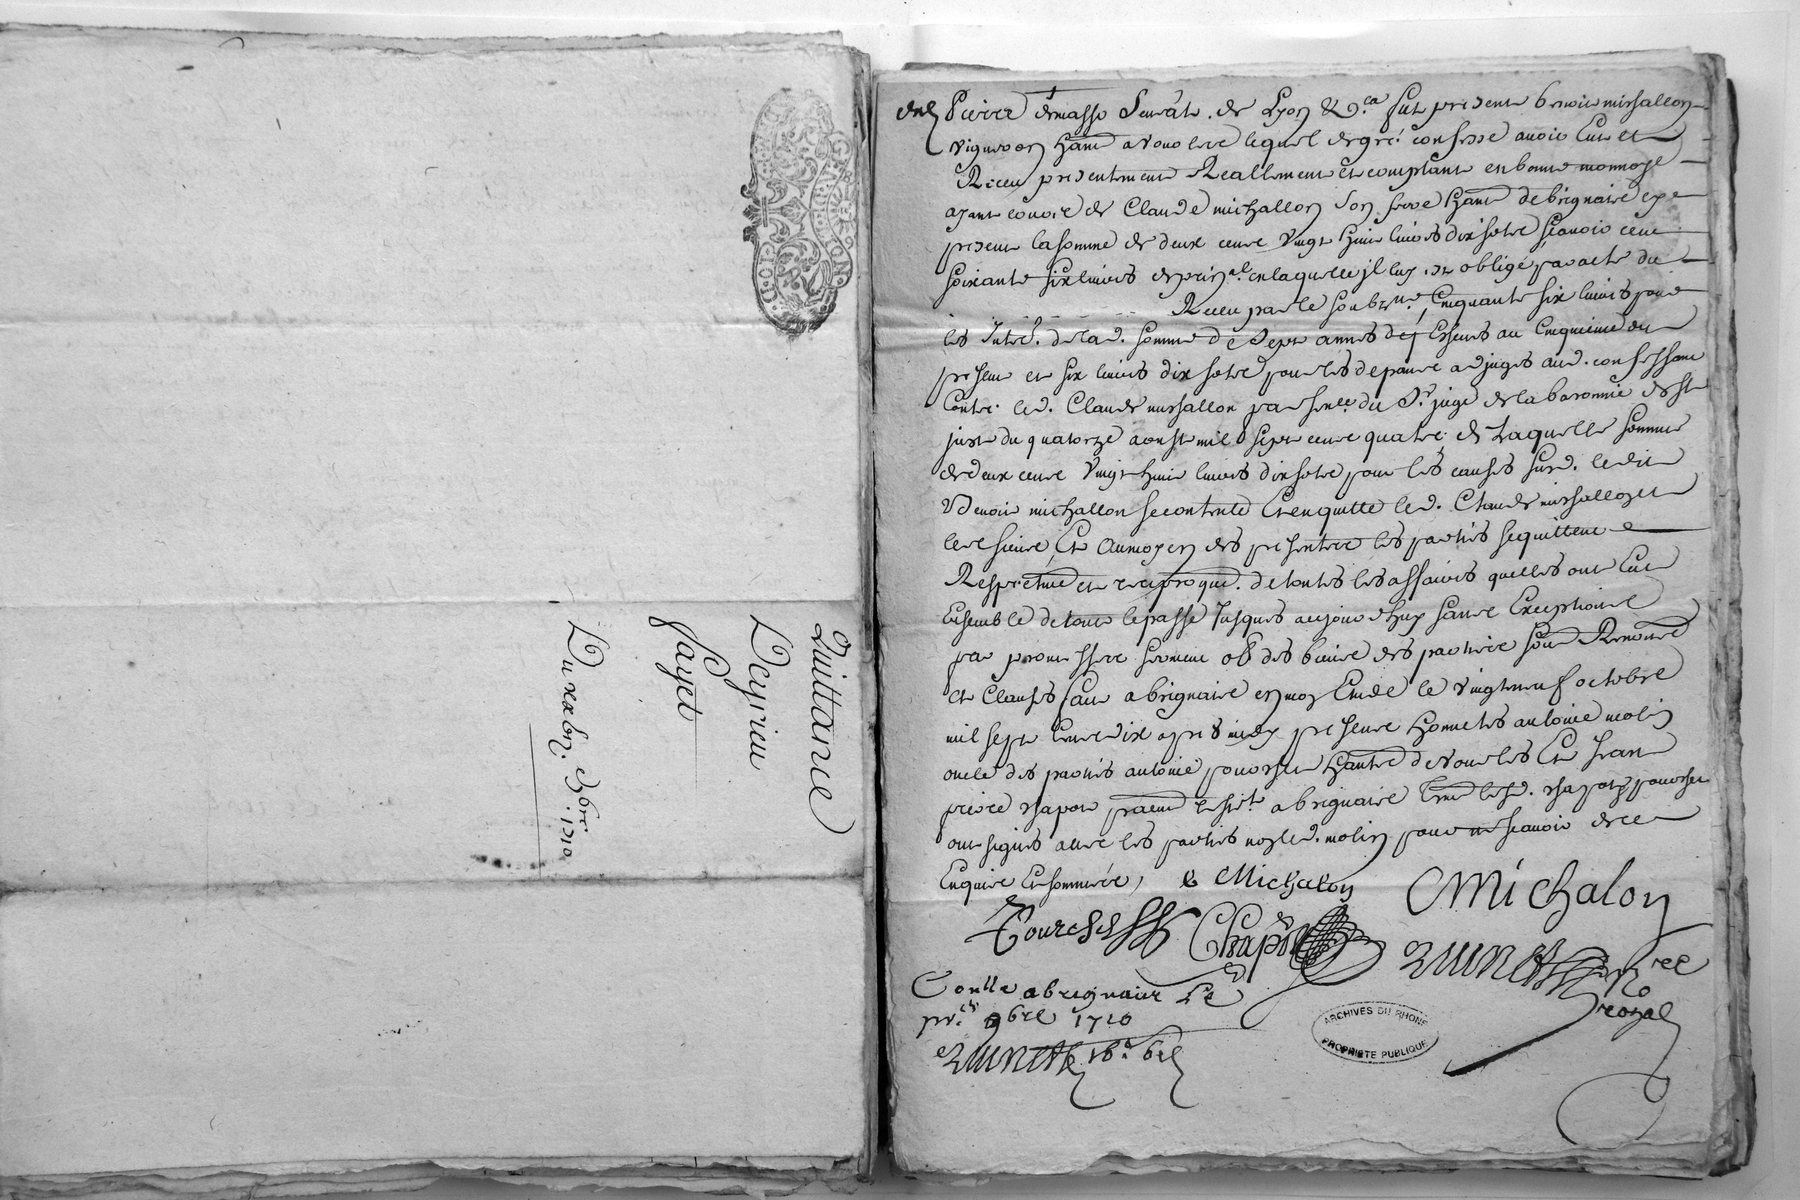 GNAлITE DE LION
Quittance
Deyrieu
Payet
Du xxbr. 9bre 1710
Pierre Senéch. de Lyon &c.a fut present benoit michallon
vigneron hant a vourles lequel de gré confesse avoir eu et
Receu presentement Reallement et comptant en bonne monnoye
ayant cours de Claude michallon son frere hant de brignaix cy
present la somme de deux cent vingt huit livres dix sols sçavoir cent
soixante six livres de prin.al en laquelle il luy est obligé par acte du
Receu par le soubz.ne, Cinquante six livres pour
les Inter. de lad. somme de sept annes escheues au Cinquieme du
present et six livres dix sols pour les depans adjugés aud. confessant
contre led. Claude michallon par sence du Sr. juge de la baronnie de St
just du quatorze aoust mil sept cent quatre de Laquelle somme
de deux cent vingt huit livres dix sols pour les causes susd. ledit
benoit michallon se contente Et en quitte led. Claude michallon et
les siens, Et au moyen des presentes les parties se quittent
Respective et reciproque. de toutes les affaires quelles ont eu
Ensemble de tout le passé Jusques aujourdhuy sans Exception
par promesses serment ob des biens des parties soub Renon
et Clauses fait a brignaix en mon Etude le vingt neuf octobre
mil sept cent dix apres midy present honnetes antoine molin
oncle des parties antoine pourchet hant de vourles Et Jean
pierre chapot pract resid.t a brignaix tem lesd. chapot pourchet
ont signés avec les parties non led. molin pour ne sçavoir de ce
Enquis Et sommé,
C Michalon
C Michalon
Pourchet
Chapot
nore
royal
Conlle a brignaix Le
pr. 9bre 1710
ARCHIVES DU RHONE
PROPRIETE PUBLIQUE